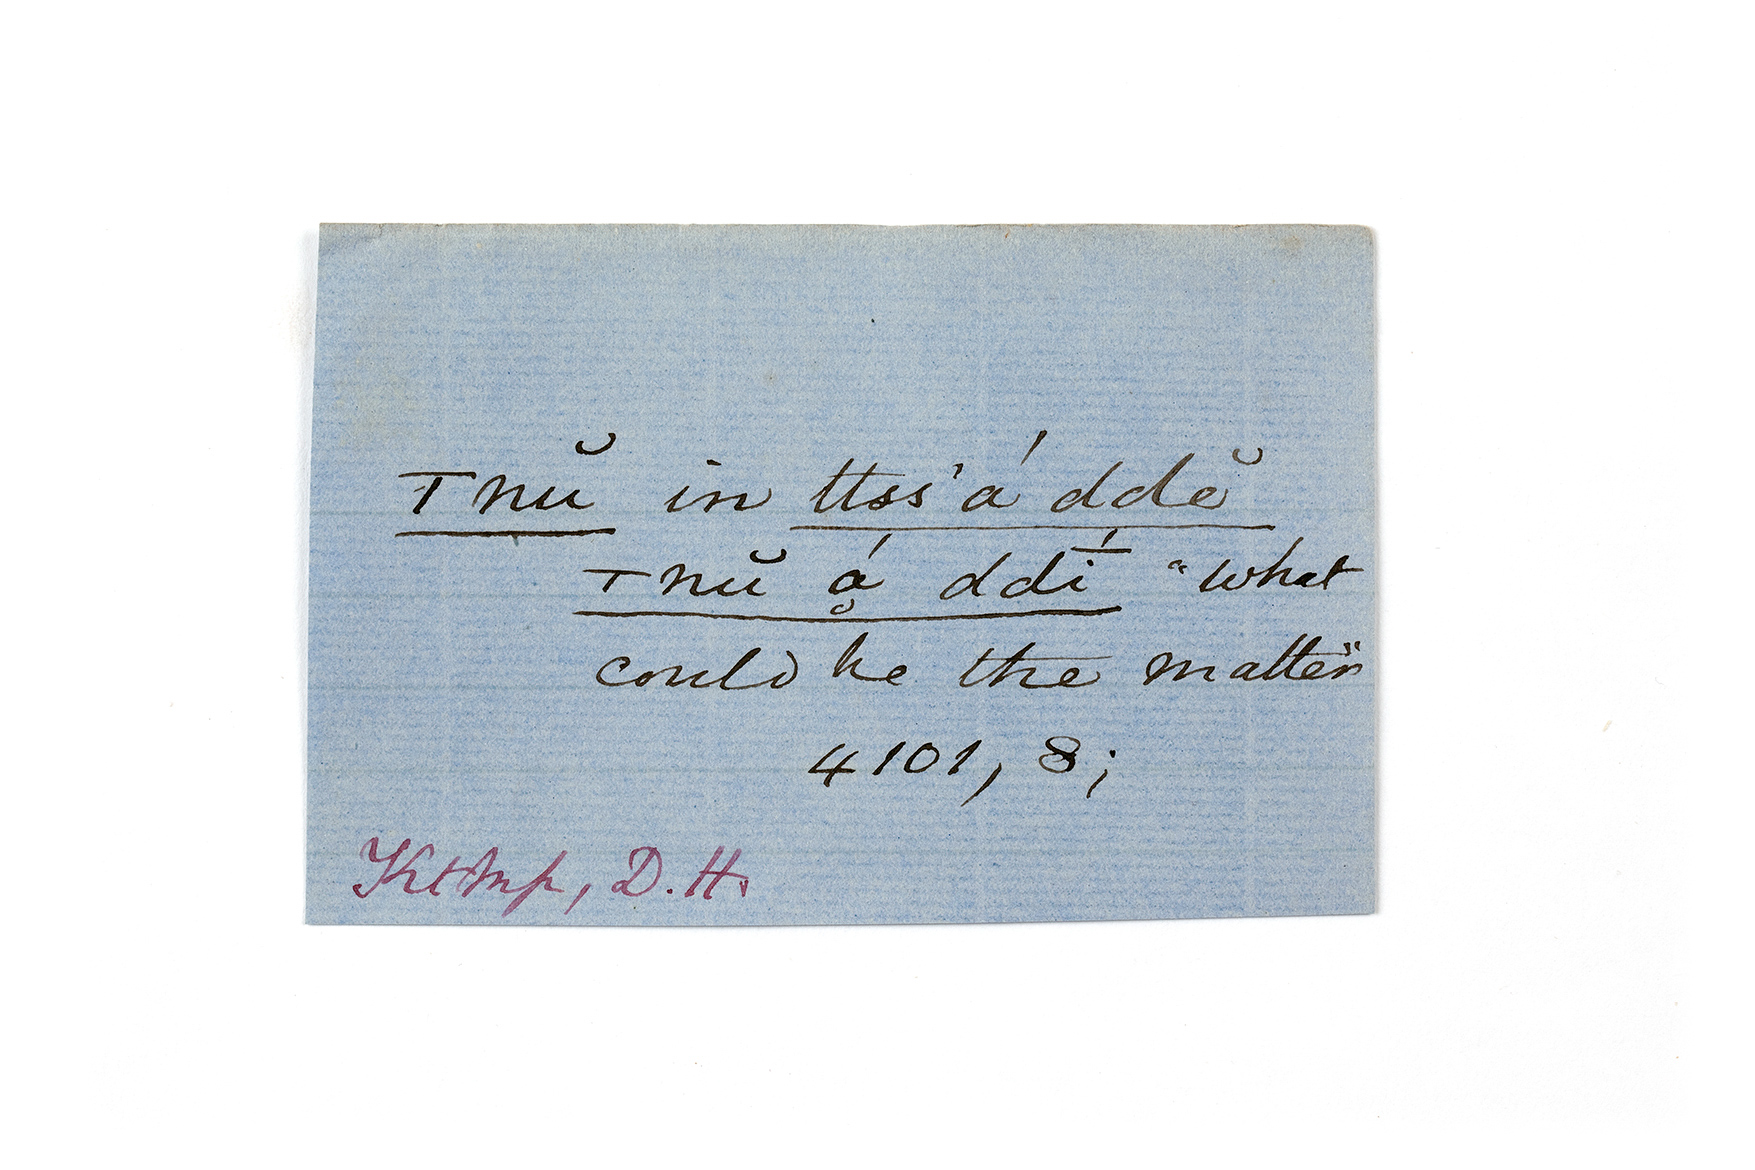 Tnŭ in ttss'á ddĕ
Tnŭ ḁ̊́ ddī́ "what
could be the matter"
4101, 8;
Kthmp, D.H.